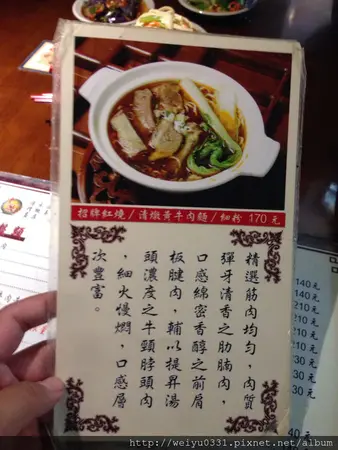 招牌紅燒/清燉黃牛肉麵/細粉 170元
精選筋肉均勻,肉質
彈牙清香之肋腩肉,
口感綿密香醇之前肩
板腱肉,輔以提昇湯
頭濃度之牛頸脖頭肉
,細火慢燜,口感層
次豐富。
140元
140元
210元
210元
210元
30元
30元
40元
http://weiyu0331.pixnet.net/album